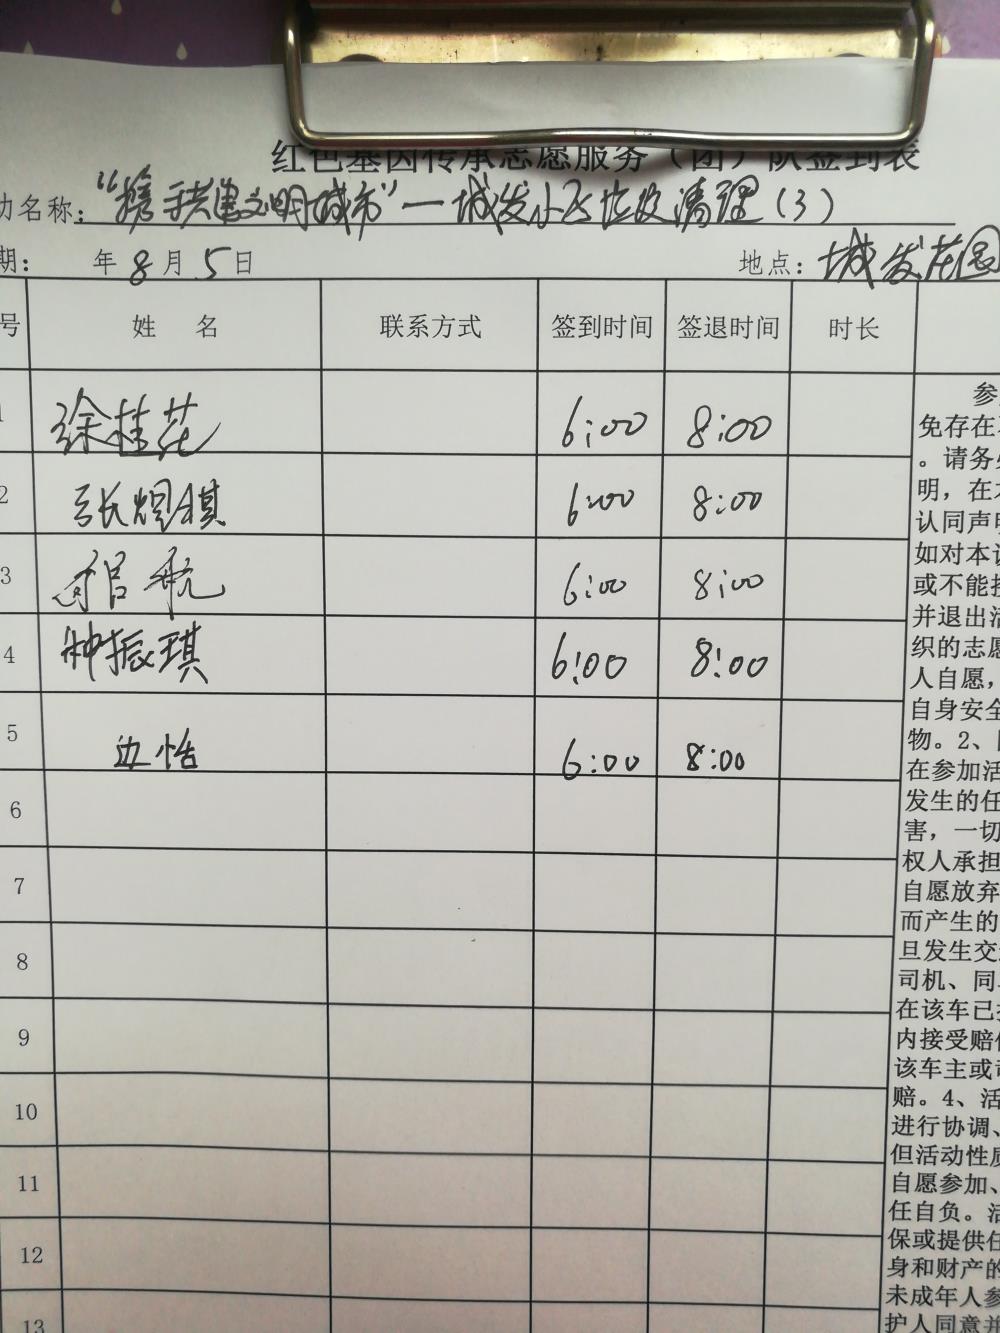 红色基因传承志愿服务（团）队签到表
动名称：“携手共建文明城市”一城发小区垃圾清理（3）
期： 年8月5日 地点：城发花园
号 姓 名 联系方式 签到时间 签退时间 时长
1 徐桂花 6:00 8:00
2 张煜琪 6:00 8:00
3 航 6:00 8:00
4 钟振琪 6:00 8:00
5 边恬 6:00 8:00
6
7
8
9
10
11
12
13
参
免存在
。请务必
明，在
认同声明
如对本
或不能接
并退出活
织的志愿
人自愿，
自身安全
物。2、
在参加活
发生的任
害，一切
权人承担
自愿放弃
而产生的
旦发生交
司机、同
在该车已
内接受赔
该车主或
赔。4、活
进行协调、
但活动性质
自愿参加、
任自负。活
保或提供任
身和财产的
未成年人参
护人同意并